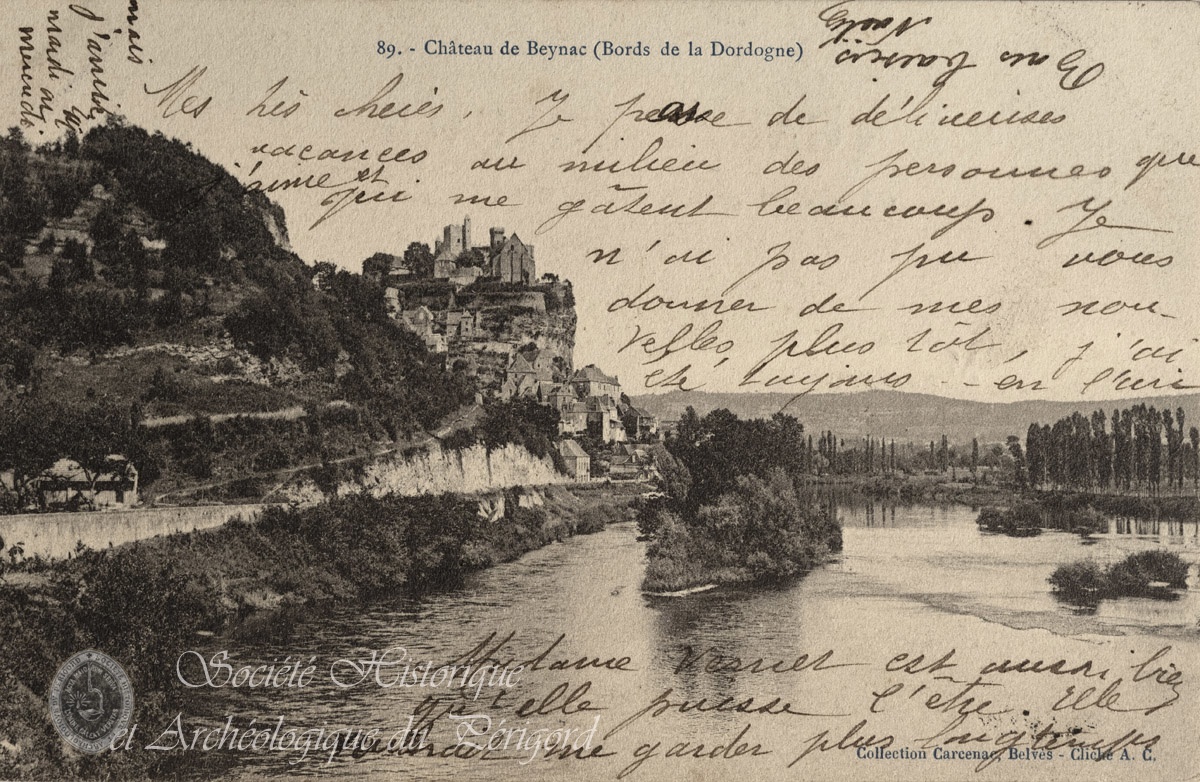 89. - Château de Beynac (Bords de la Dordogne)
Mes très chéris, Je passe de délicieuses
vacances au milieu des personnes que
j'aime et qui me gâtent beaucoup. Je
n'ai pas pu vous
donner de mes nou-
velles plus tôt, j'ai
été toujours - en l'air
Madame est aussi bien
qu'elle puisse l'être. Elle
me garder plus longtemps
mais
j'arrive
mardi ou
mercredi
Bons baisers
Société Historique
et Archéologique du Périgord
Collection Carcenac, Belvès - Cliché A. C.